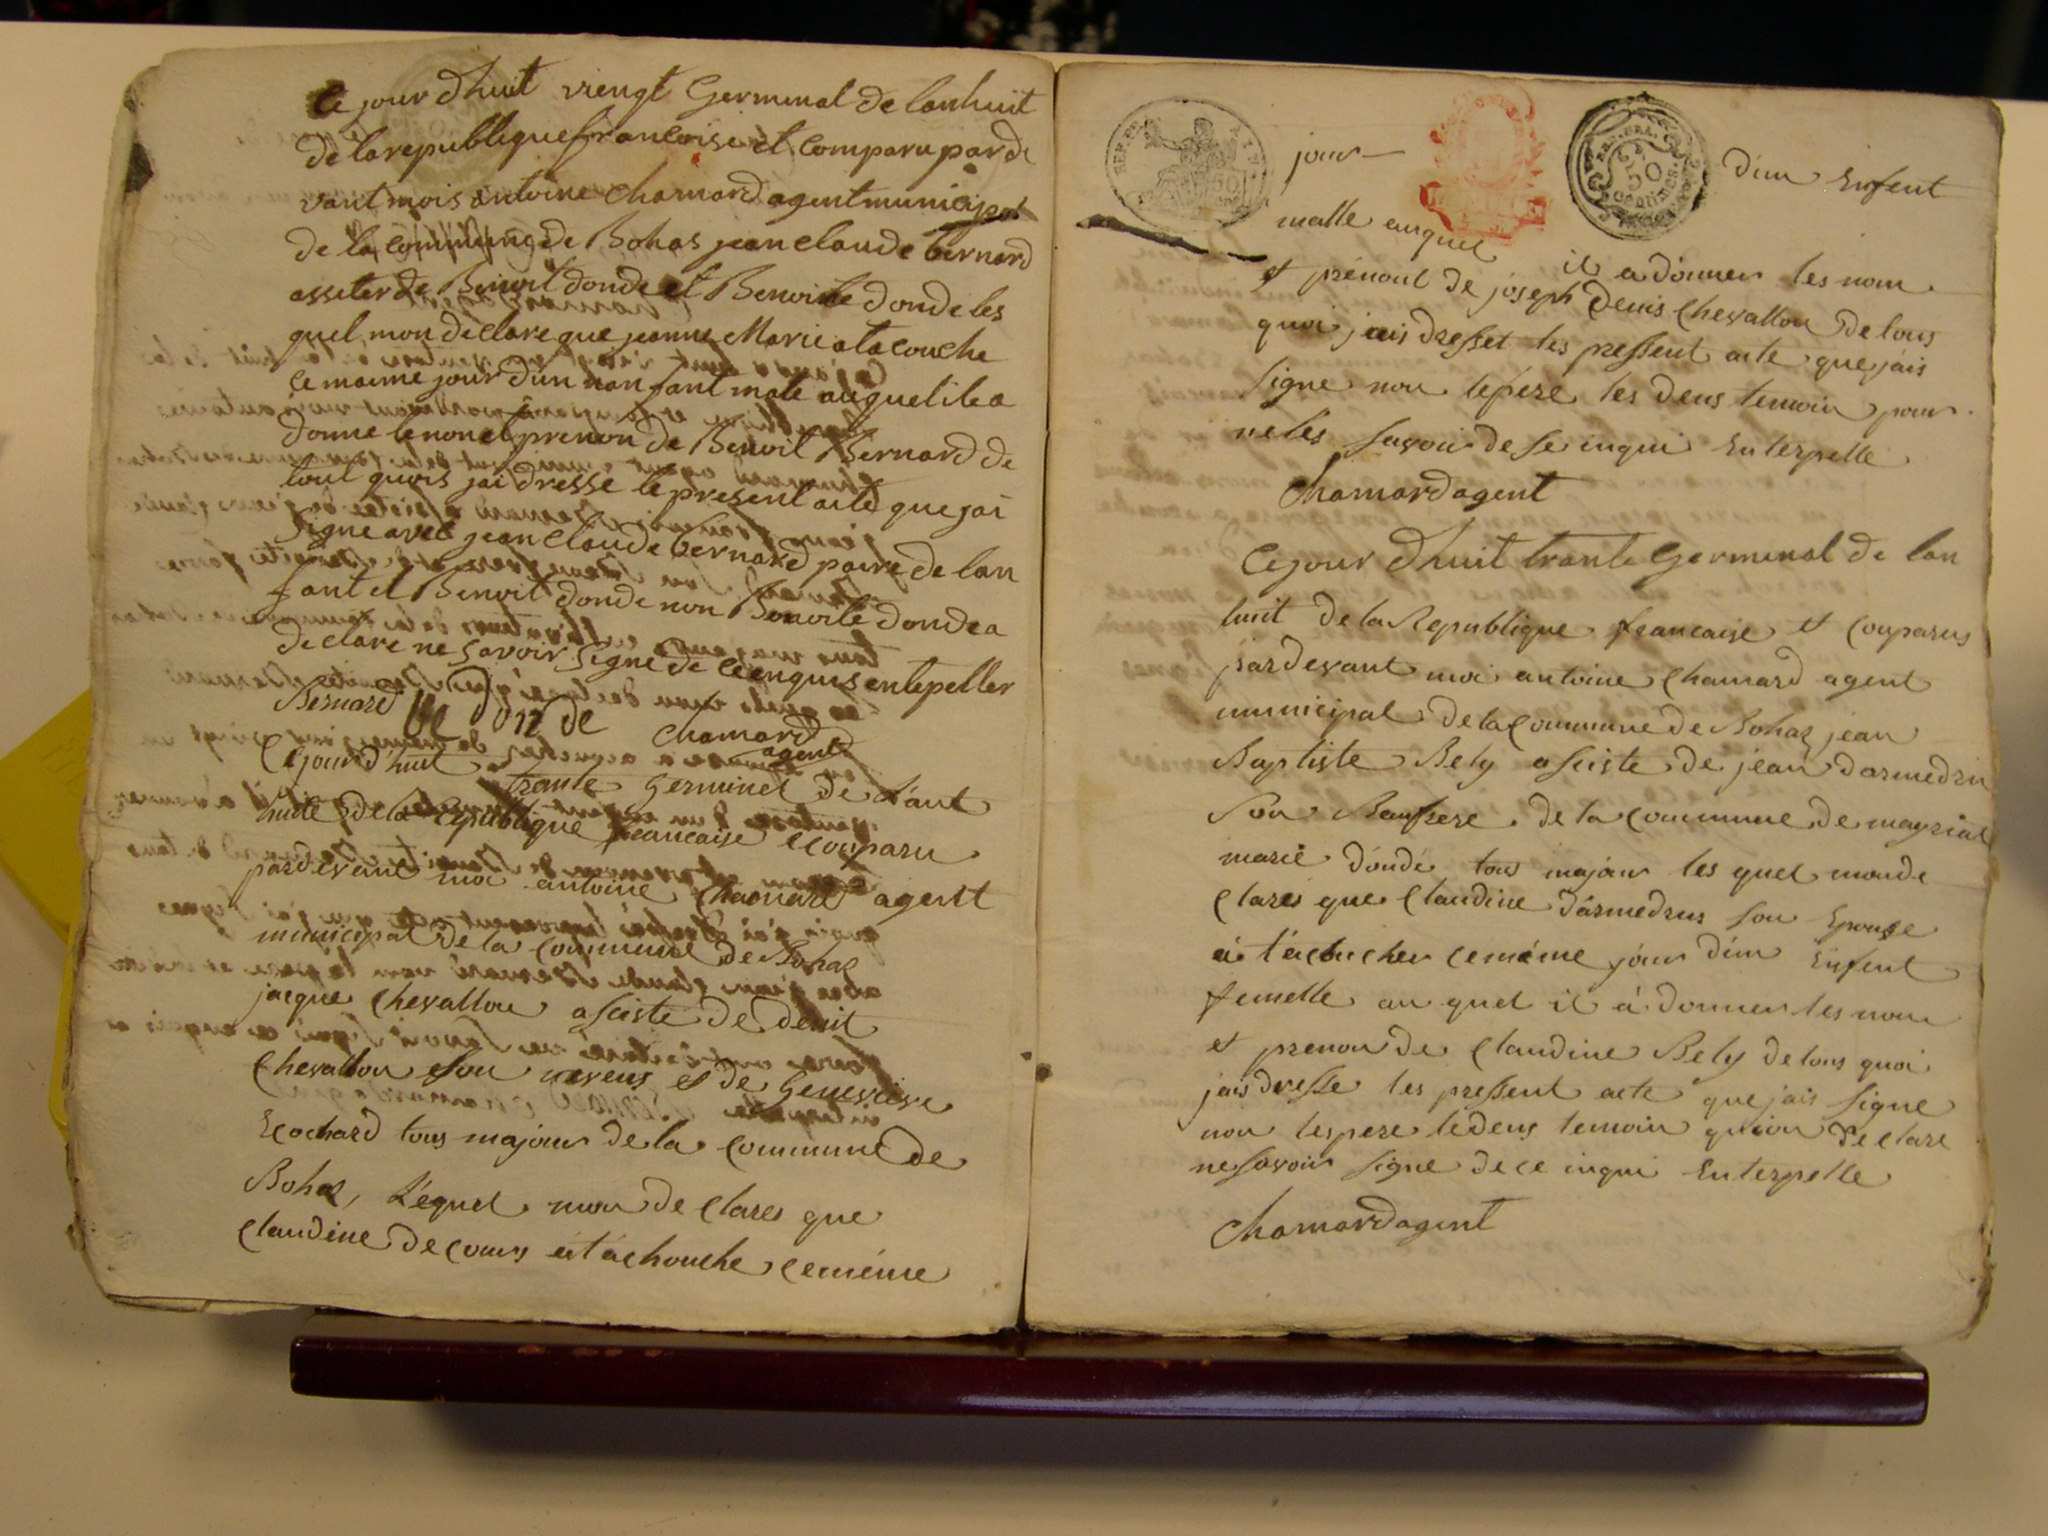 Ce jour Dhuit viengt Germinal de lanhuit
de la republique francoise et comparu parde
vant mois antoine Chamard agent municipal
de la commune de Bohas jean Claude bernard
assiter de Benoit donde et Benoite donde les
quel mon declare que jeanne Marie ata couche
le maime jour dun nan fant male auquel il a
donne le non et prenon de Benoit Bernard de
tout quois jai dresse le present acte que jai
signe avec jean Claude bernard paire de lan
fant et Benoit donde non Benoite donde a
declare ne savoir signe de ce enquis entepeller
Bernard Be Donde Chamard
agent
Cejourd'huit trante Germinel de L'ant
huite de la Republique francaise ecouparu
pardevent moi antoine Chamard agent
municipal de la commune de Bohaz
jacque Chevallon asciste de denit
Chevallon son neveus et de Genevieve
Ecochard tous majour de la commune de
Bohaz, Léquel mon de Clares que
Claudine decours ast achouche cemême
REP. FRA.
50
centimes
jour d'un Enfent
malle auquel il a donner les nom
et prénout de joseph Denis Chevallon de tous
quoi jais dresset les pressent acte que jais
signe non lepere les deus temoin pour
neles savoir de se inqui Enterpelle
Chamard agent
Cejour Dhuit trante Germinal de lan
huit de la Republique francaise et couparus
pardevant moi antoine Chamard agent
municipal de la Commune de Bohaz jean
Baptiste Bely asciste de jean darmedru
son Beaufrere de la Commune de meyriat
marie dondé tous majour les quel monde
Clares que Claudine Darmedrus son Epouse
ait acoucher cemême jour d'un Enfent
femelle au quel il á donner les nom
et prenon de Claudine Bely de tous quoi
jais dresse les pressent acte que jais signe
non les pere ledeus temoin quion declare
ne savoir signe de ce inqui Enterpelle
Chamard agent